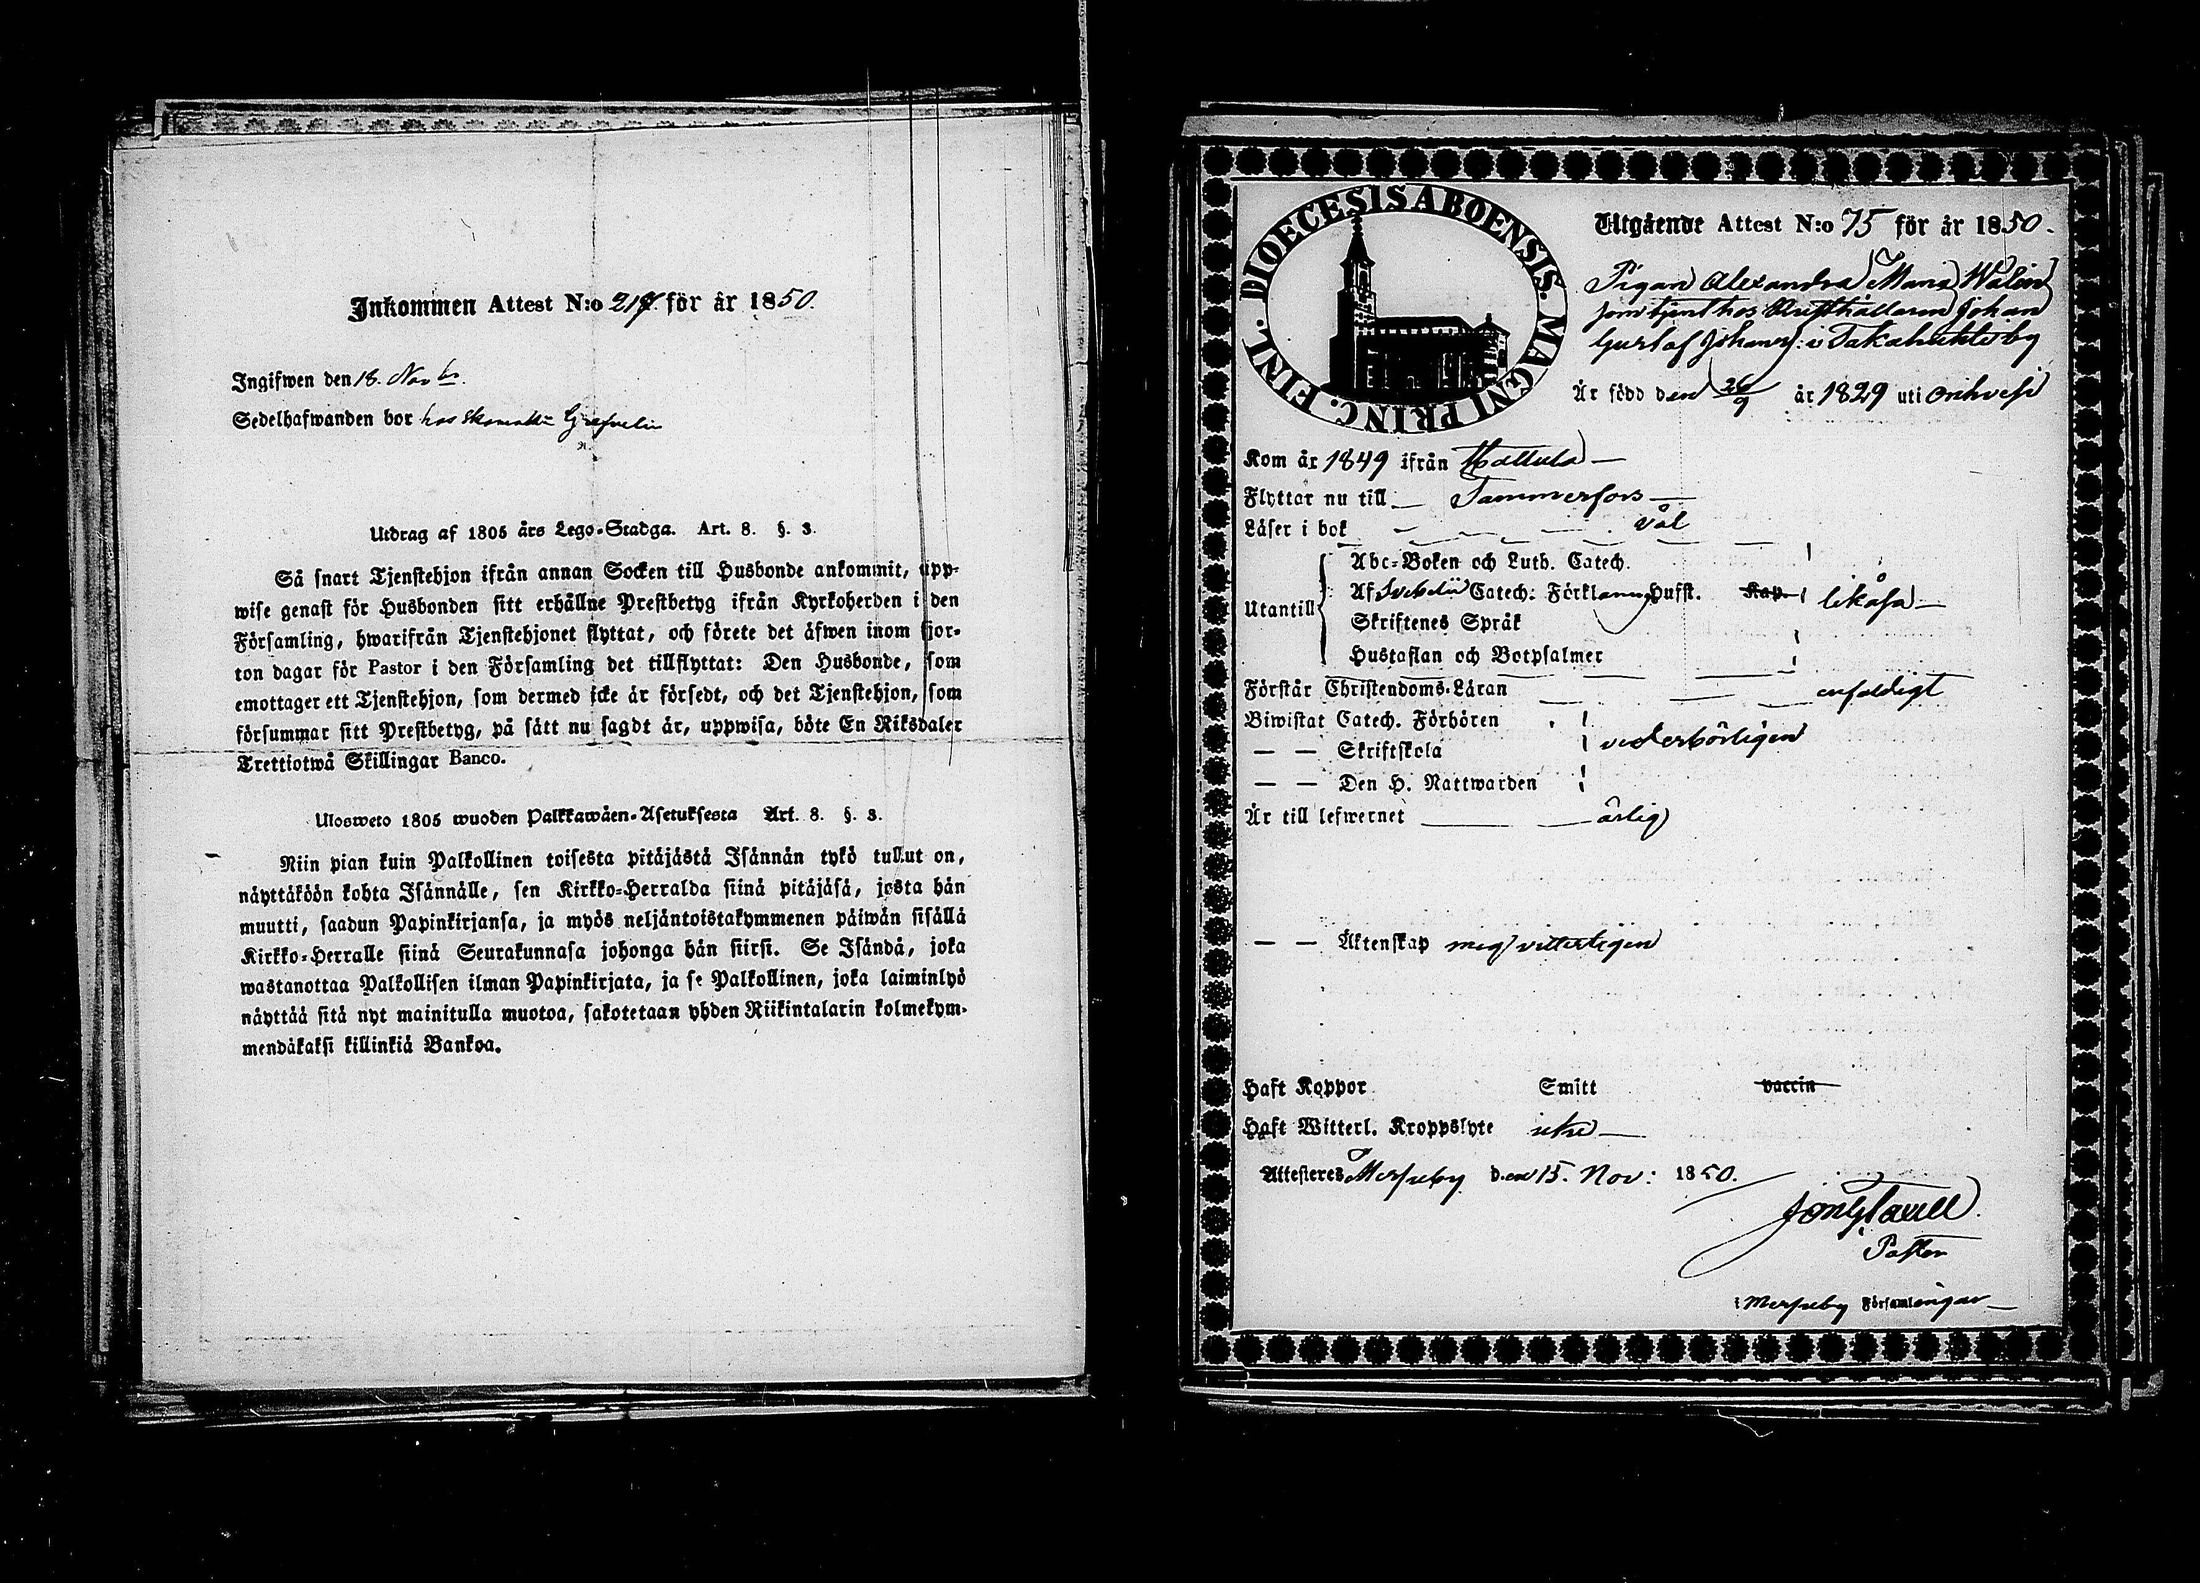 Inkommen Attest N:o 217. för år 1850.
Ingifwen den 18. Novbr.
Sedelhafwanden bor hos Skomak: Grefvelin
Utdrag af 1805 års Lego-Stadga. Art. 8. §. 3.
Så snart Tjenstehjon ifrån annan Socken till Husbonde ankommit, upp-
wise genast för Husbonden sitt erhållne Prestbetyg ifrån Kyrkoherden i den
Församling, hwarifrån Tjenstehjonet flyttat, och förete det äfwen inom fjor-
ton dagar för Pastor i den Församling det tillflyttat: Den Husbonde, som
emottager ett Tjenstehjon, som dermed icke är försedt, och det Tjenstehjon, som
försummar sitt Prestbetyg, på sätt nu sagdt är, uppwisa, böte En Riksdaler
Trettiotwå Skillingar Banco.
Ulosweto 1805 wuoden Palkkawäen-Asetuksesta Art. 8. §. 3.
Niin pian kuin Palkollinen toisesta pitäjästä Isännän tykö tullut on,
näyttäköön kohta Isännälle, sen Kirkko-Herralda siinä pitäjäsä, josta hän
muutti, saadun Papinkirjansa, ja myös neljäntoistakymmenen päiwän sisällä
Kirkko-Herralle siinä Seurakunnasa johonga hän siirsi. Se Isändä, joka
wastanottaa Palkollisen ilman Papinkirjata, ja se Palkollinen, joka laiminlyö
näyttää sitä nyt mainitulla muotoa, sakotetaan yhden Riikintalarin kolmekym-
mendäkaksi killinkiä Bankoa.
DIOECESIS ABOENSIS. MAGNI PRINC. FINL.
Utgående Attest N:o 75 för år 1850.
Pigan Alexandra Maria Walin
som tjent hos Arrfthållaren Johan
Gustaf Johans: i Takahuhti by
Är född den 26/9 år 1829 uti Orihvesi
Kom år 1849 ifrån Hattula
Flyttar nu till Tammerfors
Läser i bok väl
Utantill
Abc-Boken och Luth. Catech.
Af Svebelii Catech: Förklaring Husst. Kap. likåså
Skriftenes Språk
Hustaflan och Botpsalmer
Förstår Christendoms-Läran enfaldigt
Biwistat Catech. Förhören
— — Skriftskola vederbörligen
— — Den H. Nattwarden
Är till lefwernet ärlig
— — Äktenskap mig vitterligen
Haft Koppor Smitt vaccin
Haft Witterl. Kroppslyte icke
Attesteres Messuby den 15. Nov: 1850.
Pastor
i Messuby Församlingar